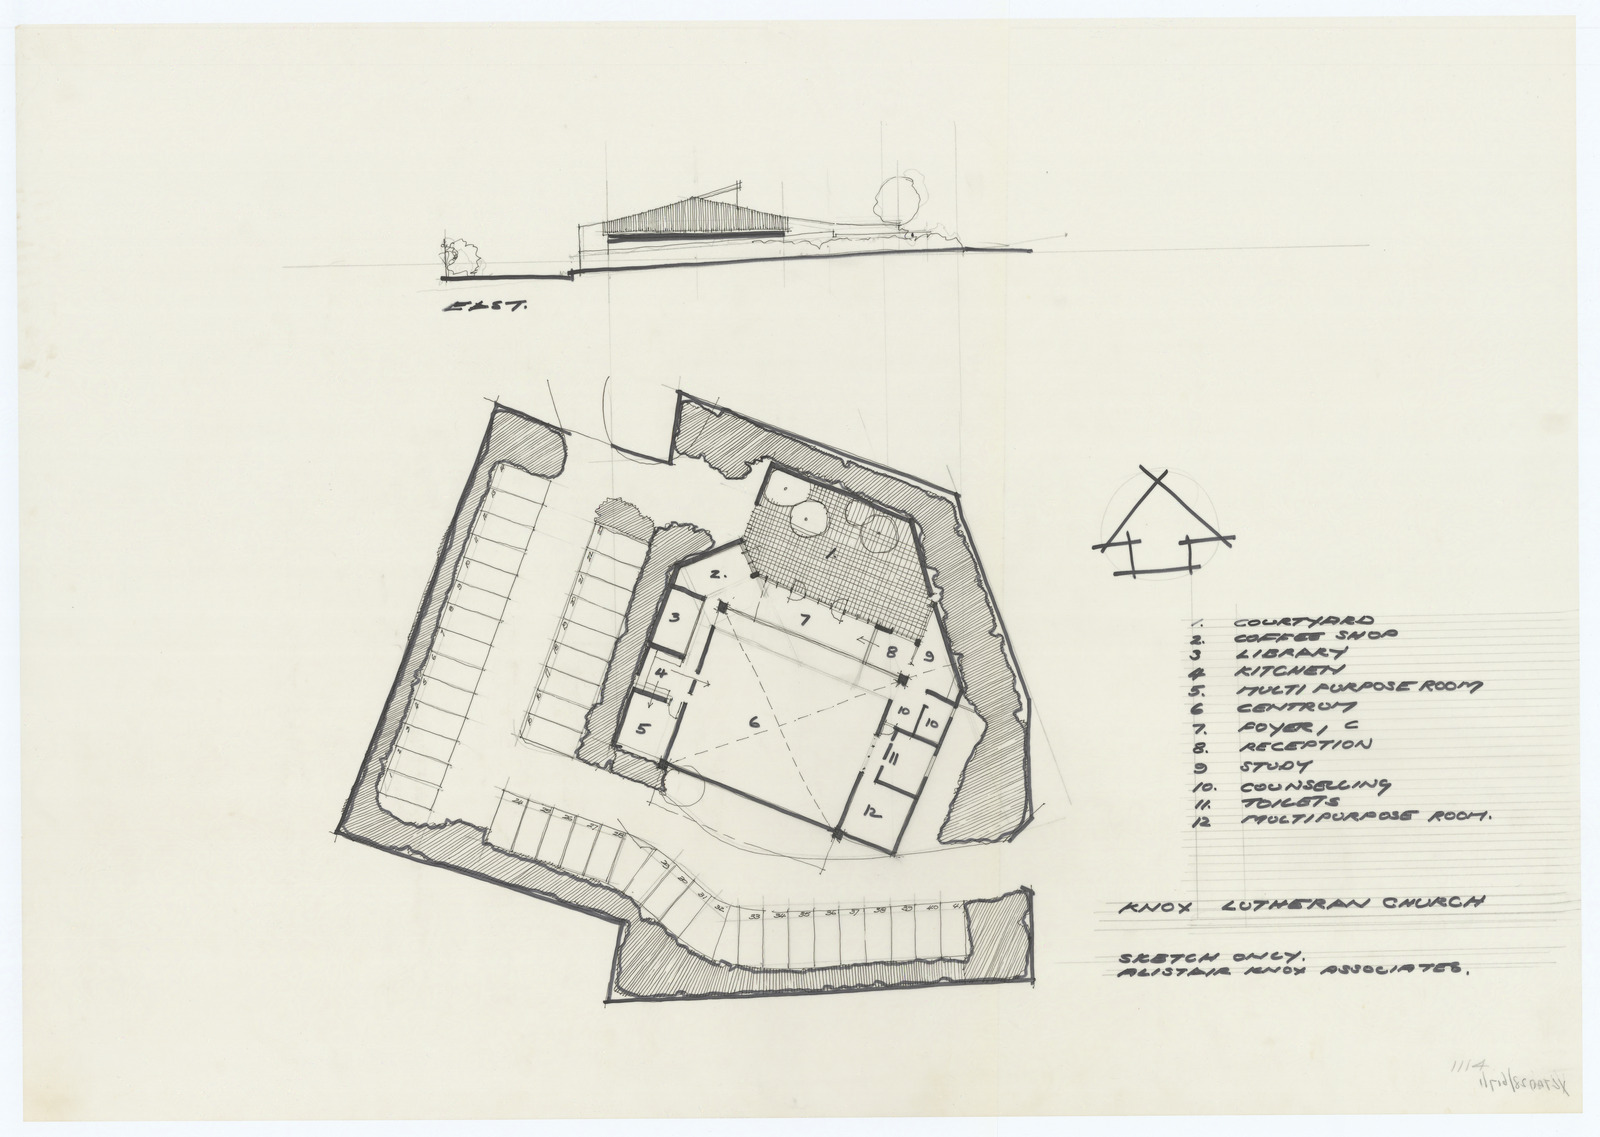 EAST.
1.
2.
3
4
5
6
7
8
9
10
10
11
12
29
30
31
32
33
34
35
36
37
38
39
40
41
1. COURTYARD
2. COFFEE SHOP
3 LIBRARY
4 KITCHEN
5. MULTI PURPOSE ROOM
6 CENTRUM
7. FOYER, C
8. RECEPTION
9 STUDY
10. COUNSELLING
11. TOILETS
12 MULTIPURPOSE ROOM.
KNOX LUTHERAN CHURCH
SKETCH ONLY.
ALISTAIR KNOX ASSOCIATES.
1114